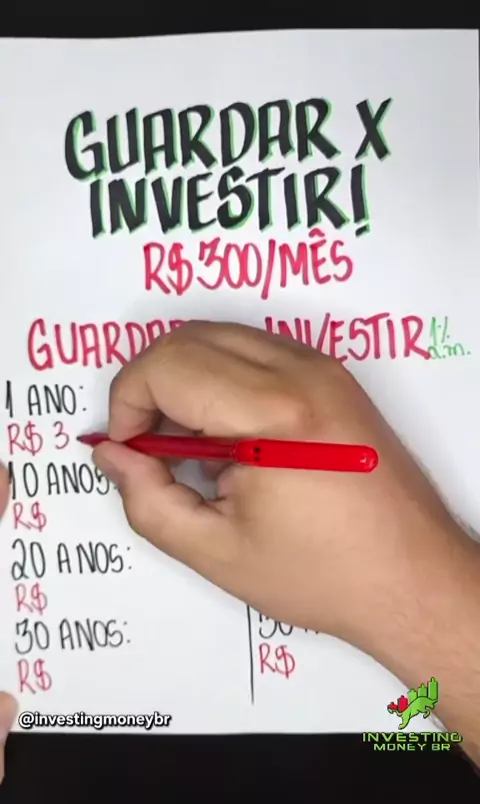 GUARDAR X
INVESTIR!
R$300/MÊS
INVESTIR 1%
a.m.
1 ANO:
R$ 3
10 ANOS:
R$
20 ANOS:
R$
30 ANOS:
R$
R$
@investingmoneybr
INVESTING
MONEY BR